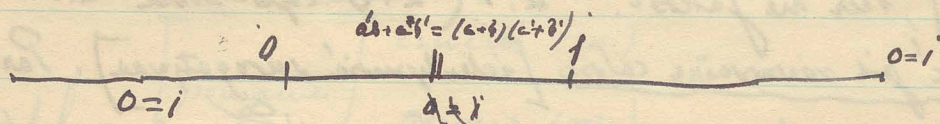 a'b+a'b' = (a+b)(a'+b')
0 1 0=i
0=i